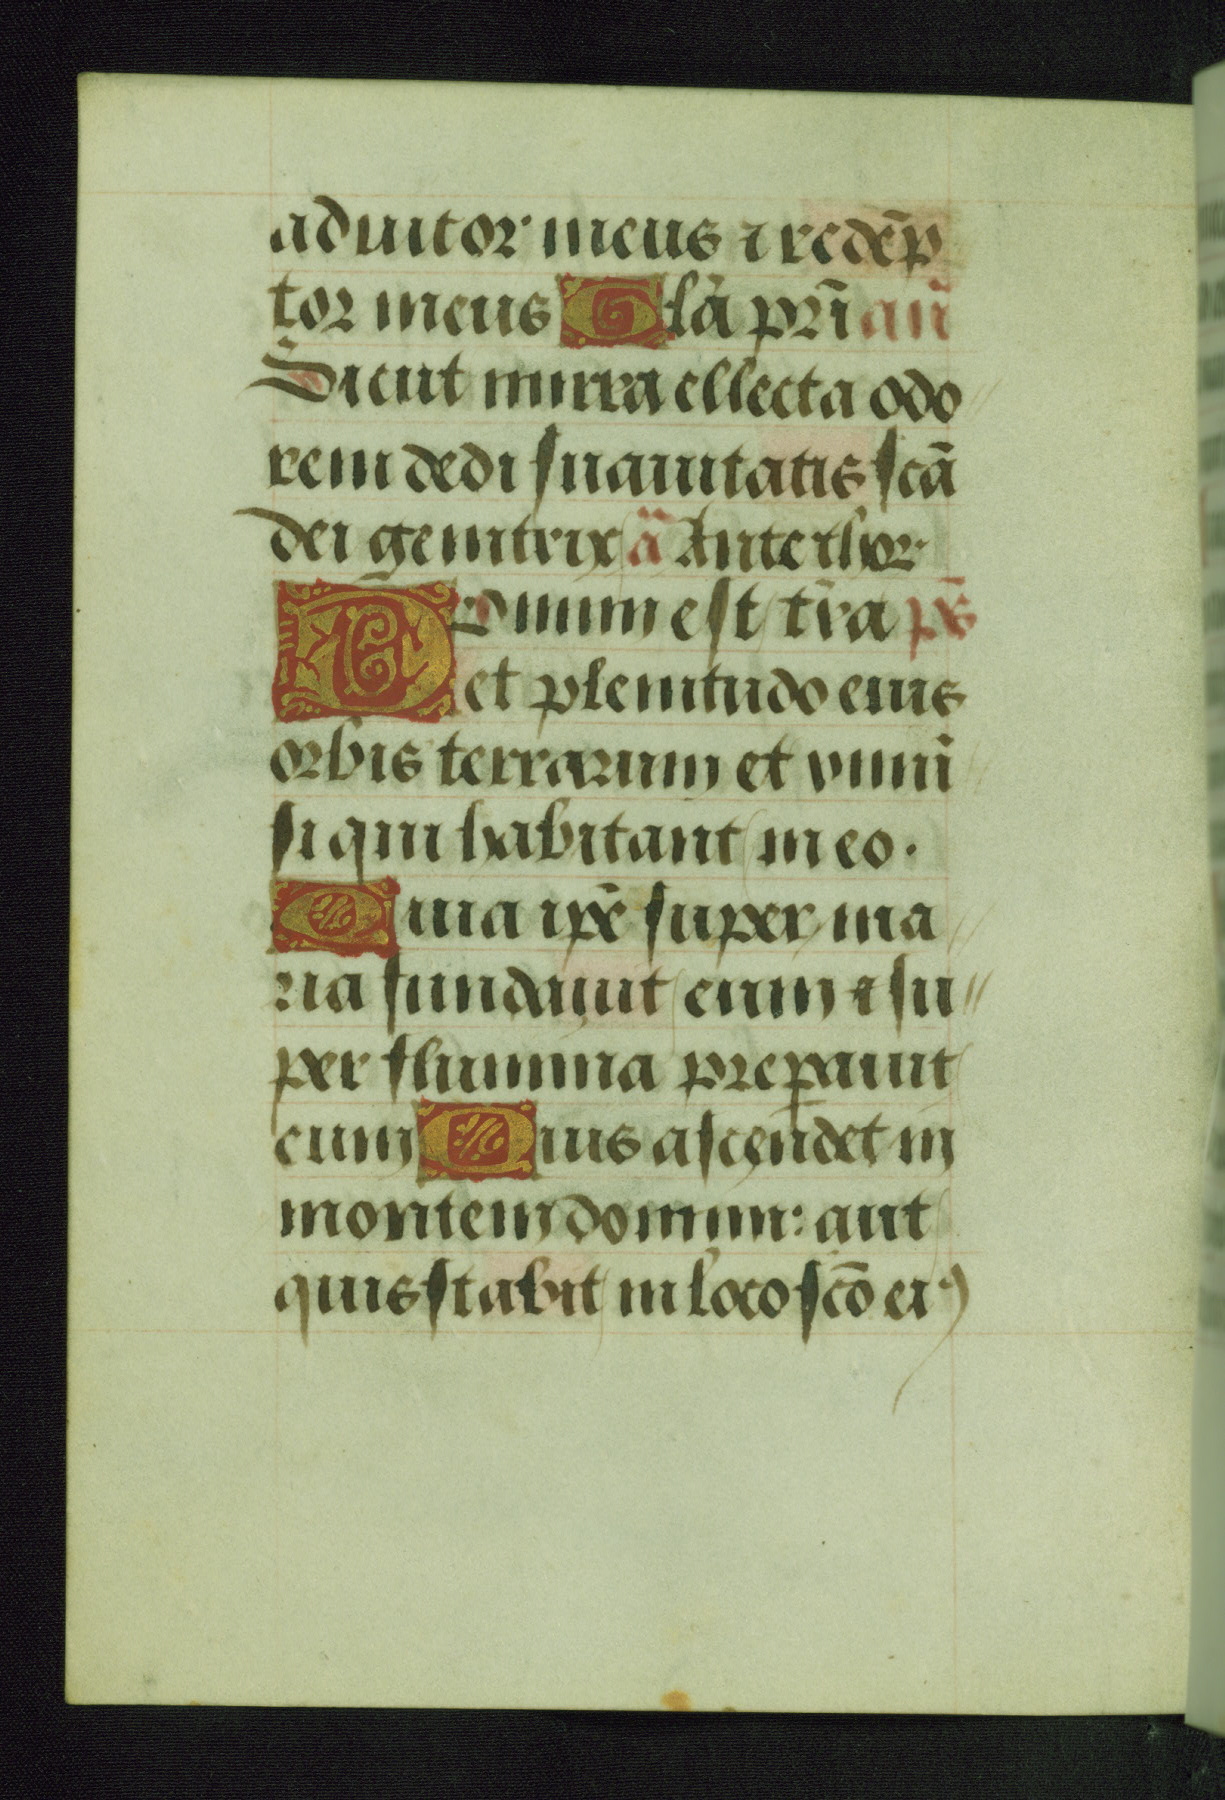 adiutor meus ⁊ redẽp
tor meus Gl̃a pr̃i añ
Sicut mirra ellecta odo
rem dedi suauitatis scã
dei genitrix ã Antethor
Domini est t̃ra p̃s
et plenitudo eius
orbis terrarum et vniũ
si qui habitant in eo.
Quia ip̃e super ma
ria fundauit eum ⁊ su
per flumina prepauit
eum Quis ascendet in
montem domini: aut
quis stabit in loco scõ eiꝰ